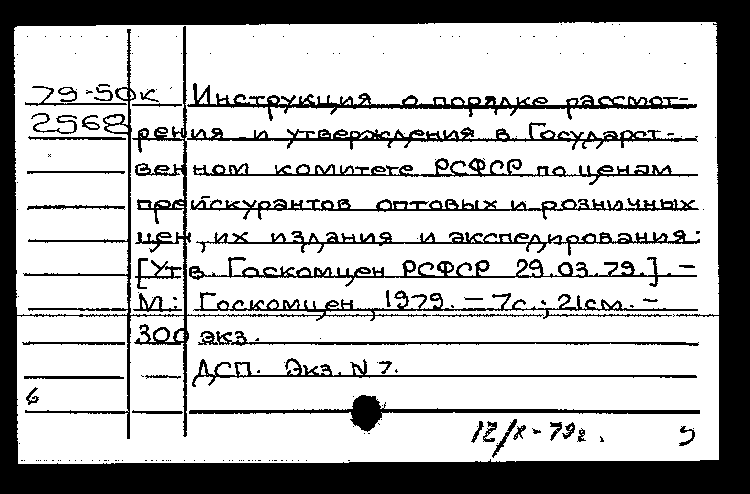 79-50к Инструкция о порядке рассмот-
2568 рения и утверждения в Государст-
венном комитете РСФСР по ценам
прейскурантов оптовых и розничных
цен, их издания и экспедирования:
[Утв. Госкомцен РСФСР 29.03.79.]. –
М.: Госкомцен, 1979. – 7с.; 21см. –
300 экз.
ДСП. Экз. N 7.
6
12/X-79г.